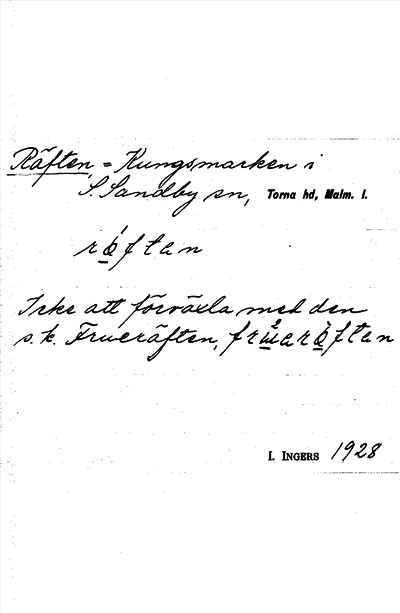 Räften, = Kungsmarken i
S. Sandby sn, Torna hd, Malm. l.
rǿ̱ftan
Icke att förväxla med den
s.k. Frueräften, frɯ̊arø̱̀ftan
I. INGERS 1928